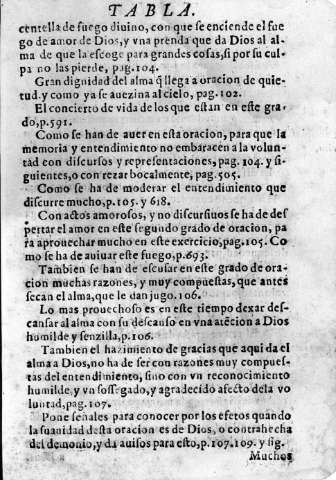 TABLA.
centella de fuego diuino, con que se enciende el fue
go de amor de Dios, y vna prenda que da Dios al al
ma de que la escoge para grandes cosas, si por su cul
pa no las pierde, pag. 104.
Gran dignidad del alma q̃ llega a oracion de quie-
tud. y como ya se auezina al cielo, pag. 102.
El concierto de vida de los que estan en este gra-
do, p. 591.
Como se han de auer en esta oracion, para que la
memoria y entendimiento no embaracen a la volun-
tad con discursos y representaciones, pag. 104. y si-
guientes, o con rezar bocalmente, pag. 505.
Como se ha de moderar el entendimiento que
discurre mucho, p. 105. y 618.
Con actos amorosos, y no discursiuos se ha de des
pertar el amor en este segundo grado de oracion, pa
ra aprouechar mucho en este exercicio, pag. 105. Co
mo se ha de auiuar este fuego, p. 693.
Tambien se han de escusar en este grado de ora-
cion muchas razones, y muy compuestas, que antes
secan el alma, que le dan jugo. 106.
Lo mas prouechoso es en este tiempo dexar des-
cansar al alma con su descanso en vna atẽcion a Dios
humilde y senzilla, p. 106.
Tambien el hazimiento de gracias que aqui da el
alma a Dios, no ha de ser con razones muy compues-
tas del entendimiento, sino con vn reconocimiento
humilde, y vn sossegado, y agradecido afecto de la vo
luntad, pag. 107.
Pone señales para conocer por los efetos quando
la suauidad desta oracion es de Dios, o contrahecha
del demonio, y da auisos para esto, p. 107. 109. y sig.
Muchos